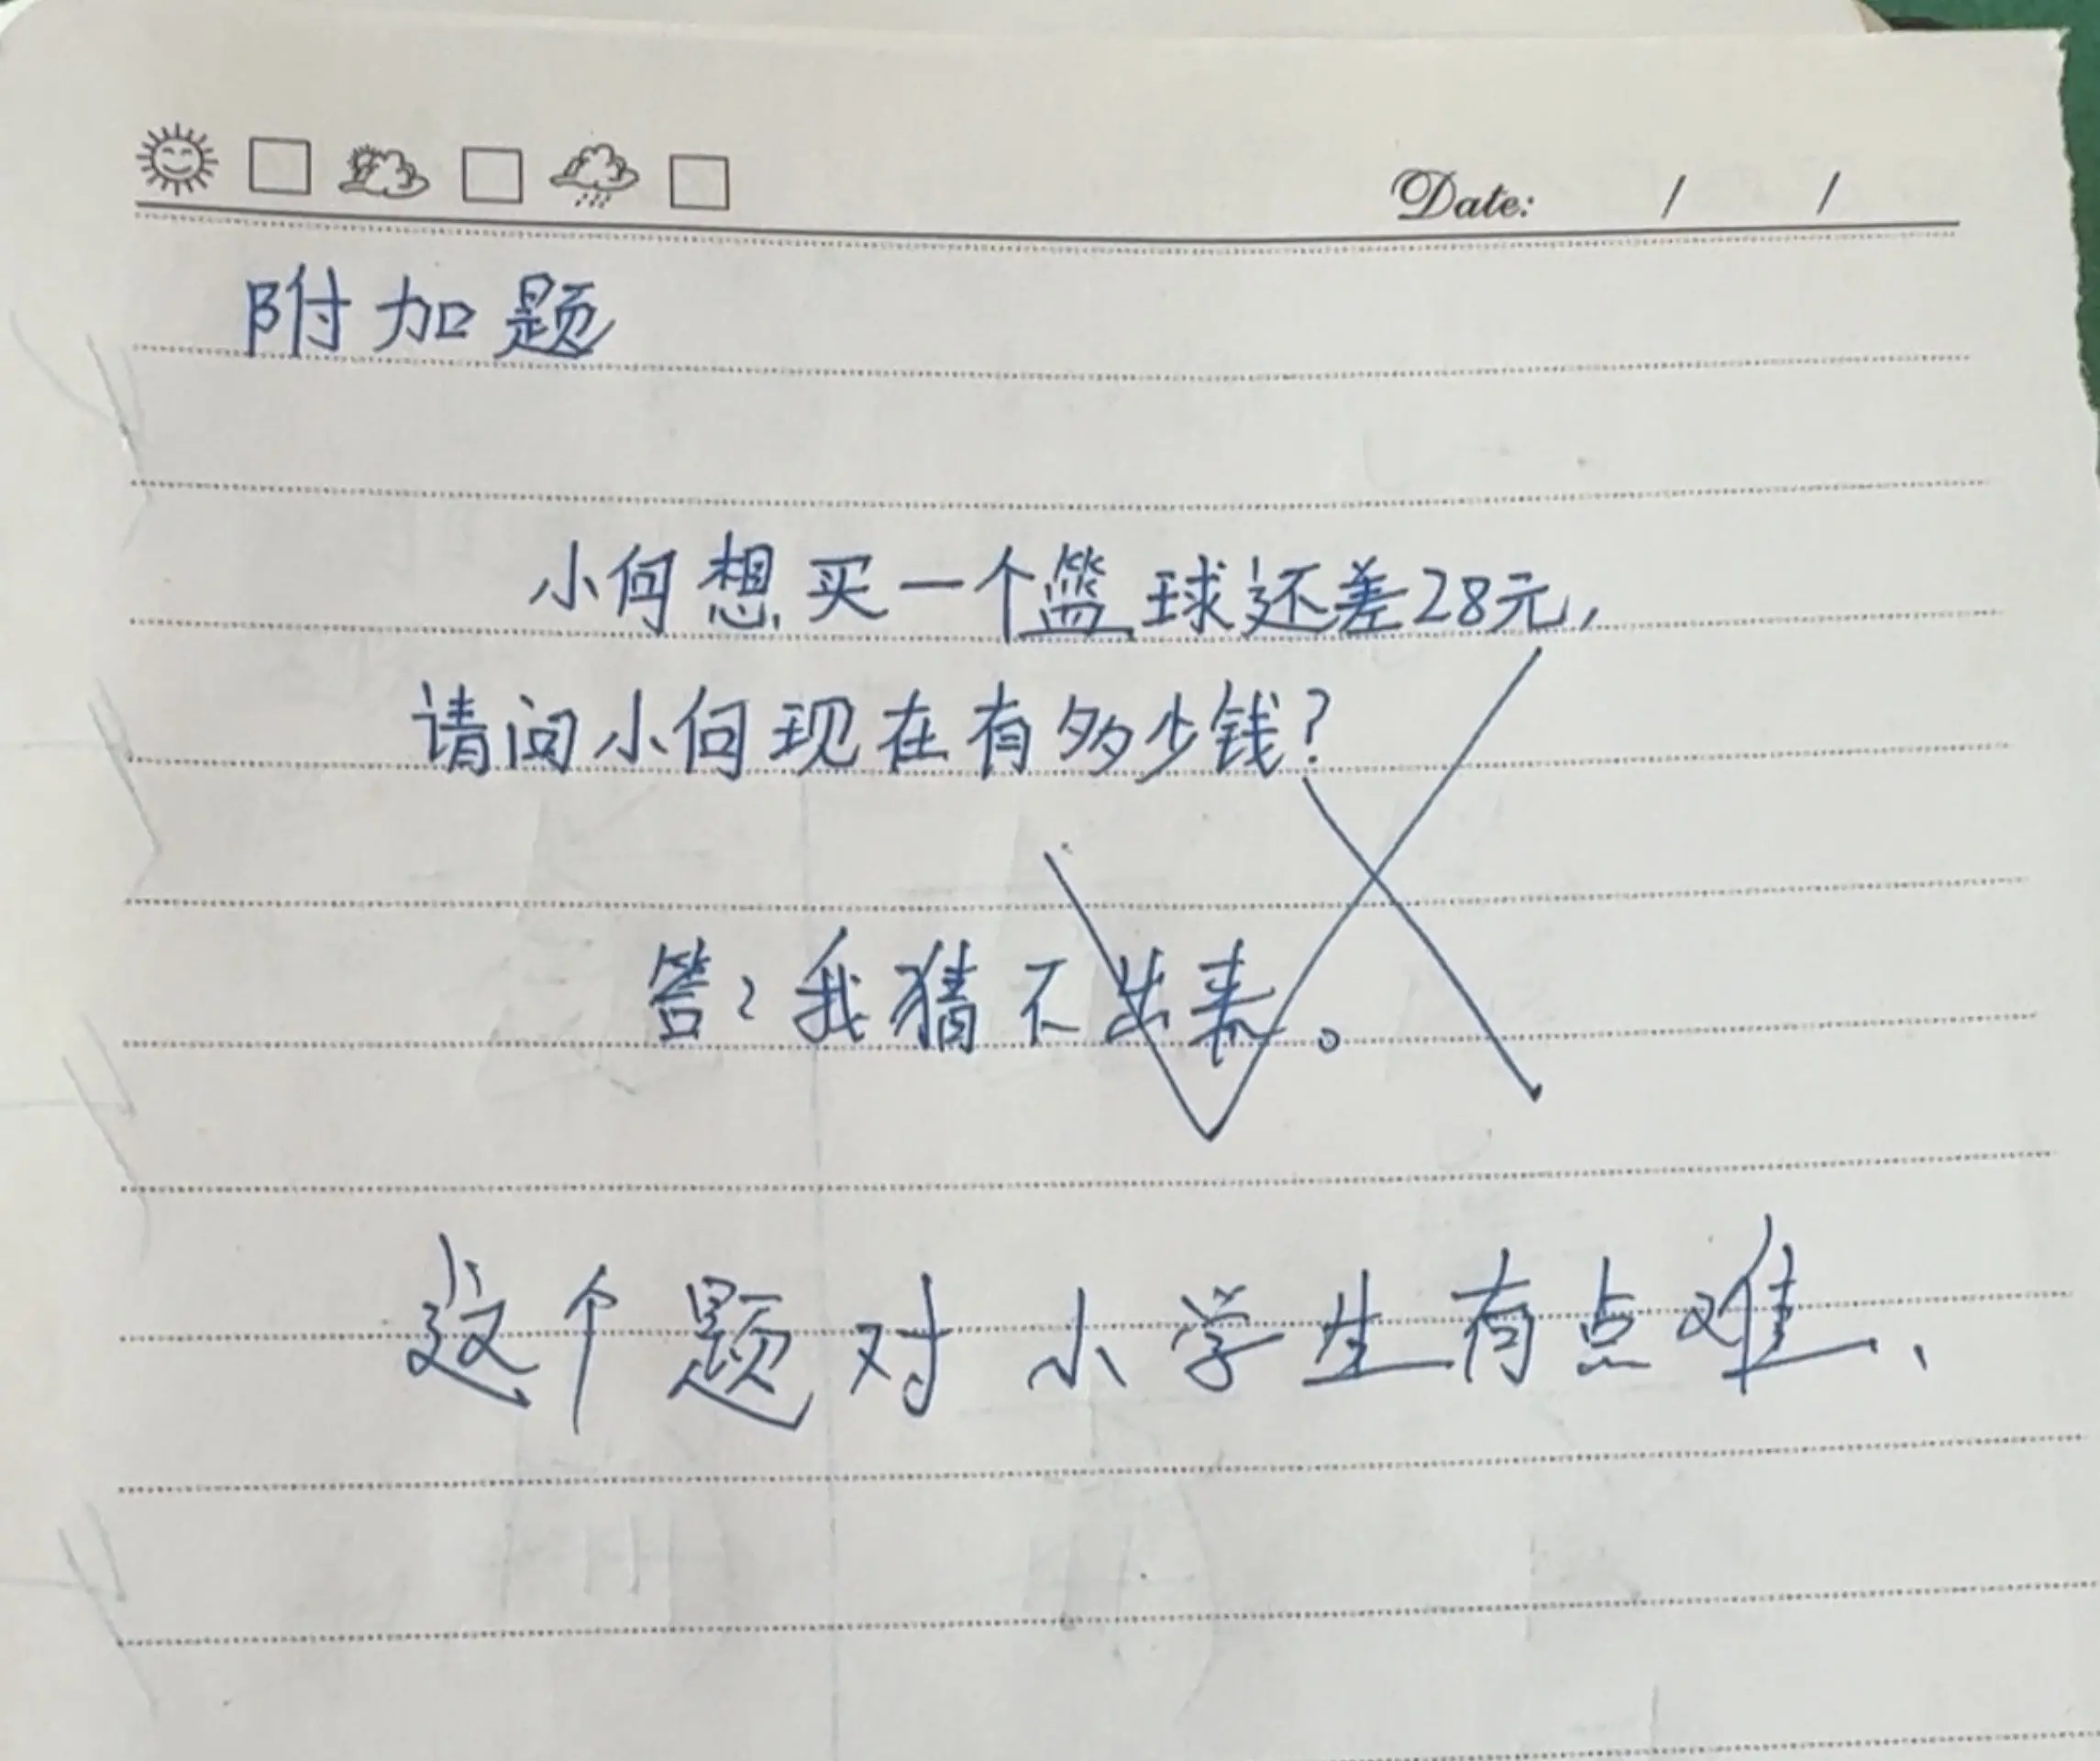 Date: / /
附加题
小何想买一个篮球还差28元,
请问小何现在有多少钱?
答:我猜不出来。
这个题对小学生有点难、